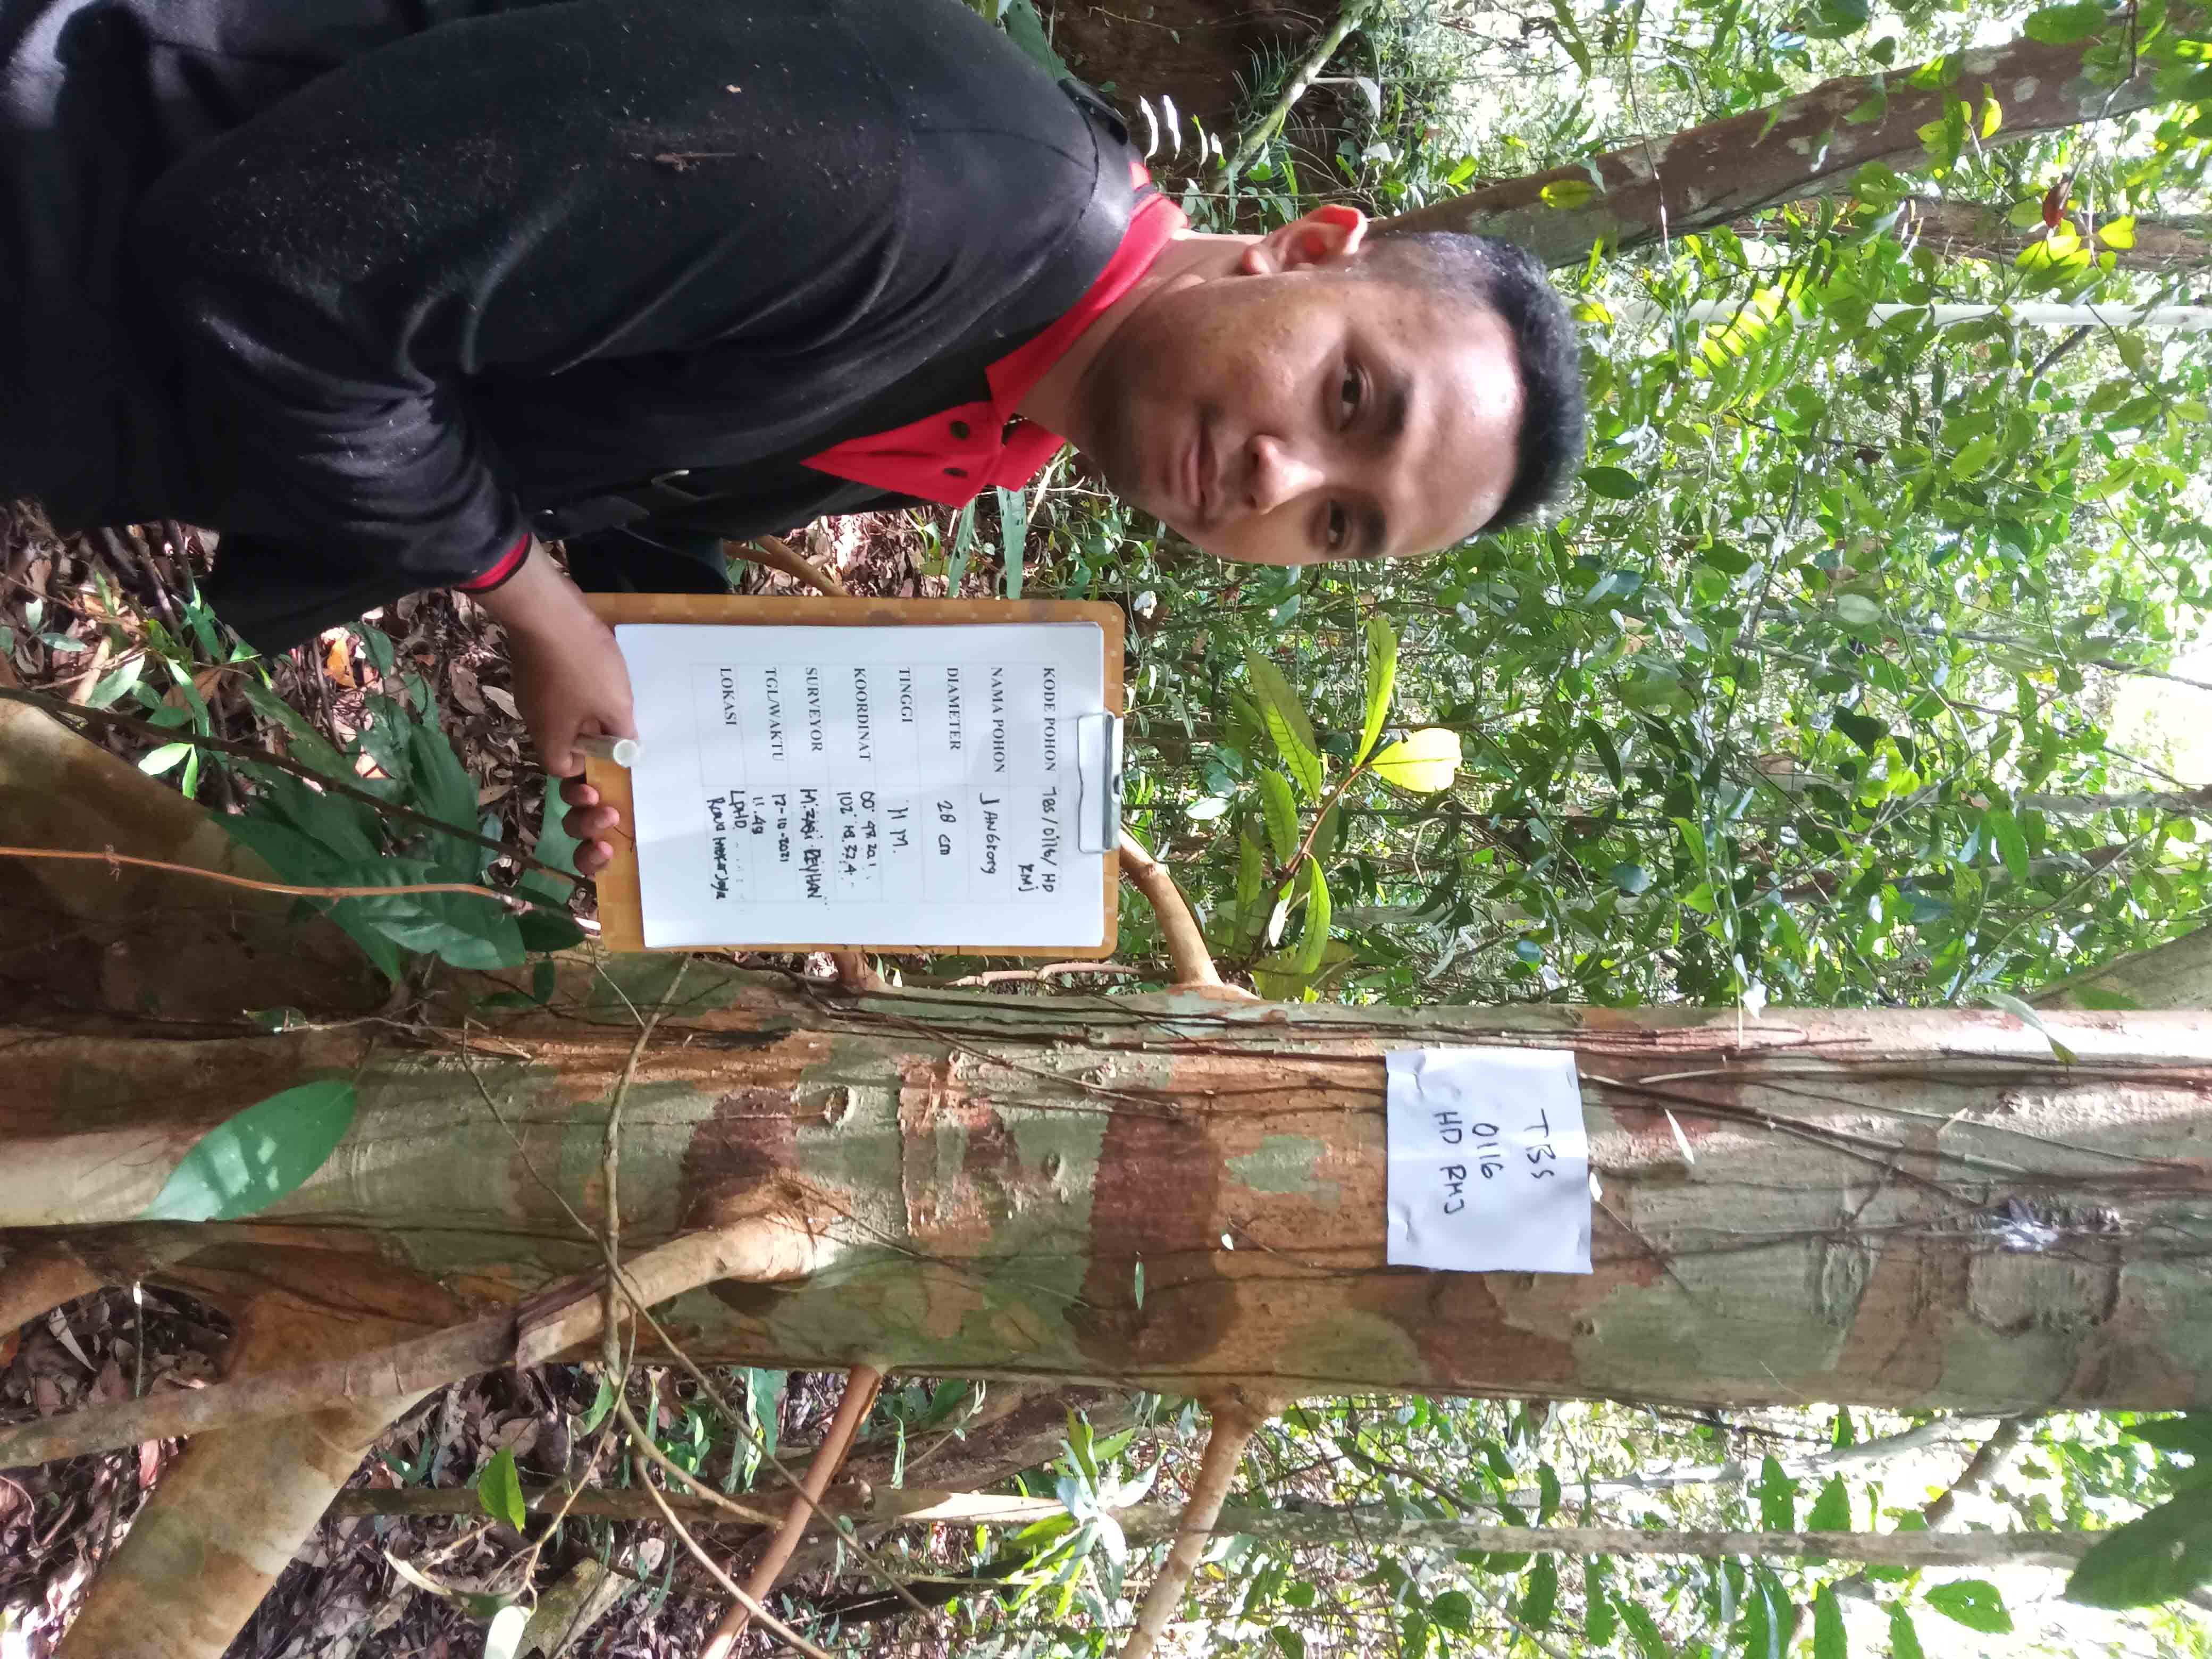 TBS
0116
HD RMJ
KODE POHON TBS/0116/ HD
RMJ
NAMA POHON JANGKANG
DIAMETER 28 cm
TINGGI 11 M.
KOORDINAT 00° 48.20.1
102° 18.32.4
SURVEYOR M. REYHAN
TGL/WAKTU 12-10-2021
11.48
LOKASI LPHD
Jaya